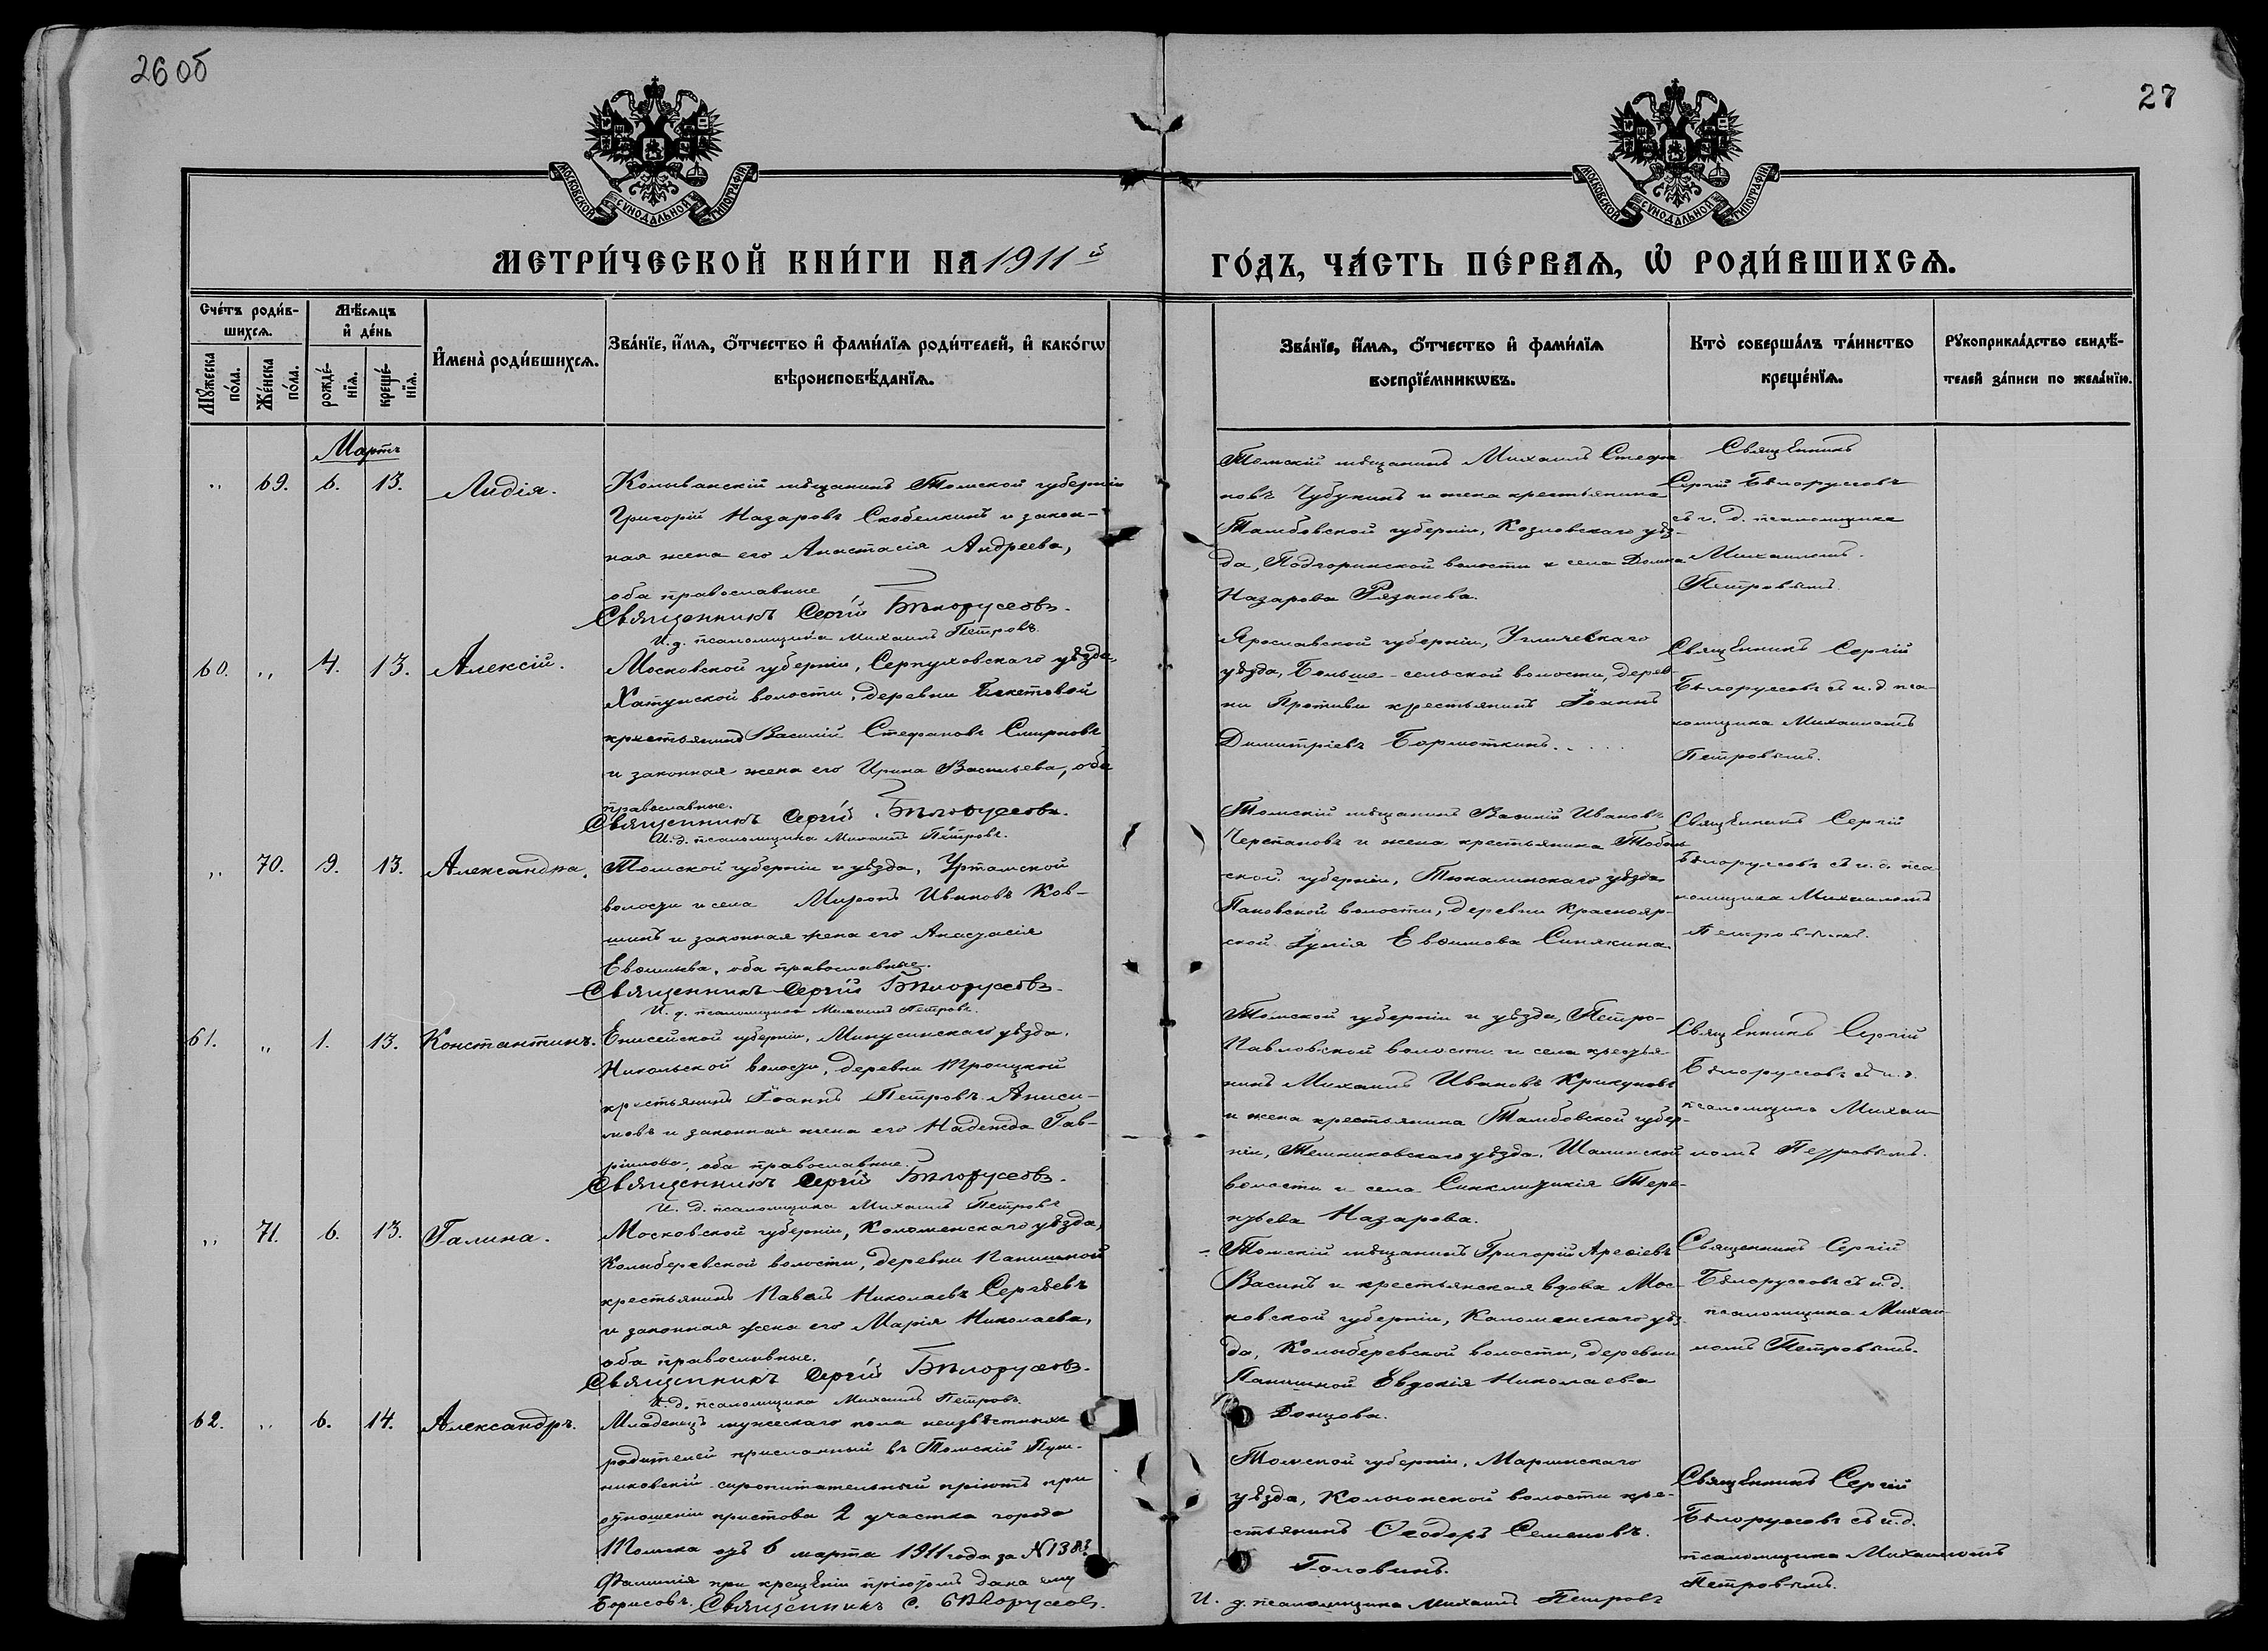 26 об
27
МОСКОВСКОЙ СѴНОДАЛЬНОЙ ТИПОГРАФІИ
МОСКОВСКОЙ СѴНОДАЛЬНОЙ ТИПОГРАФІИ
МЕТРИ́ЧЕСКОЙ КНИ́ГИ НА 1911 й
ГО́ДЪ, ЧА́СТЬ ПЕ́РВАѦ, Ѡ҆ РОДИ́ВШИХСѦ.
Сче́тъ роди́в-
шихсѧ.
Мѣ́сѧцъ
и҆ де́нь
Мꙋ́жеска
по́ла.
Же́нска
по́ла.
рожде́-
нїѧ.
креще́-
нїѧ.
И҆мена̀ роди́вшихсѧ.
Зва́нїе, и҆́мѧ, ѻ҆́тчество и҆ фами́лїѧ роди́телей, и҆ како́гѡ
вѣроисповѣ́данїѧ.
Зва́нїе, и҆́мѧ, ѻ҆́тчество и҆ фами́лїѧ
воспрїе́мникѡвъ.
Кто̀ соверша́лъ та́инство
креще́нїѧ.
Рꙋкоприкла́дство свидѣ́-
телей за́писи по жела́нїю.
Мартъ
„ 69. 6. 13. Лидія.
Колыванскій мѣщанинъ Томской губерніи
Григорій Назаровъ Скобелкинъ и закон-
ная жена его Анастасія Андреева,
оба православные
Священникъ Сергій Бѣлоруссовъ.
И. д. псаломщика Михаилъ Петровъ.
Томскій мѣщанинъ Михаилъ Стефа-
новъ Чубукинъ и жена крестьянина
Тамбовской губерніи, Козловскаго уѣз-
да, Подгоринской волости и села Домна
Назарова Рязанова.
Священникъ
Сергій Бѣлоруссовъ
съ и. д. псаломщика
Михаиломъ
Петровымъ.
60. „ 4. 13. Алексій.
Московской губерніи, Серпуховскаго уѣзда,
Хатунской волости, деревни Бекетовой
крестьянинъ Василій Стефановъ Смирновъ
и законная жена его Ирина Васильева, оба
православные.
Священникъ Сергій Бѣлоруссовъ.
И. д. псаломщика Михаилъ Петровъ.
Ярославской губерніи, Угличскаго
уѣзда, Больше-сельской волости, дерев-
ни Противы крестьянинъ Іоаннъ
Димитріевъ Бормоткинъ.
Священникъ Сергій
Бѣлоруссовъ съ и. д. пса-
ломщика Михаиломъ
Петровымъ.
„ 70. 9. 13. Александра.
Томской губерніи и уѣзда, Уртамской
волости и села Миронъ Ивановъ Ков-
шинъ и законная жена его Анастасія
Евфимьева, оба православные.
Священникъ Сергій Бѣлоруссовъ.
И. д. псаломщика Михаилъ Петровъ.
Томскій мѣщанинъ Василій Ивановъ
Черепановъ и жена крестьянина Тоболь-
ской губерніи, Тюкалинскаго уѣзда
Пановской волости, деревни Краснояр-
ской Іулія Евфимова Синякина.
Священникъ Сергій
Бѣлоруссовъ съ и. д. пса-
ломщика Михаиломъ
Петровымъ.
61. „ 1. 13. Константинъ.
Енисейской губерніи, Минусинскаго уѣзда,
Никольской волости, деревни Троицкой
крестьянинъ Іоаннъ Петровъ Аниси-
мовъ и законная жена его Надежда Гав-
ріилова, оба православные.
Священникъ Сергій Бѣлоруссовъ.
И. д. псаломщика Михаилъ Петровъ
Томской губерніи и уѣзда, Петро-
Павловской волости и села крестья-
нинъ Михаилъ Ивановъ Крикуновъ
и жена крестьянина Тамбовской губер-
ніи, Темниковскаго уѣзда, Шалинской
волости и села Синклитикія Тере-
нтьева Назарова.
Священникъ Сергій
Бѣлоруссовъ съ и. д.
псаломщика Михаи-
ломъ Петровымъ.
„ 71. 6. 13. Галина.
Московской губерніи, Коломенскаго уѣзда,
Колыберевской волости, деревни Паншиной
крестьянинъ Павелъ Николаевъ Сергѣевъ
и законная жена его Марія Николаева,
оба православные.
Священникъ Сергій Бѣлоруссовъ.
И. д. псаломщика Михаилъ Петровъ.
Томскій мѣщанинъ Григорій Арефіевъ
Васинъ и крестьянская вдова Мос-
ковской губерніи, Коломенскаго уѣз-
да, Колыберевской волости, деревни
Паншиной Евдокія Николаева
Донцова.
Священникъ Сергій
Бѣлоруссовъ съ и. д.
псаломщика Михаи-
ломъ Петровымъ.
62. „ 6. 14. Александръ.
Младенецъ мужескаго пола неизвѣстныхъ
родителей присланный въ Томскій Пуш-
никовскій сиропитательный пріютъ при
отношеніи пристова 2 участка города
Томска отъ 6 марта 1911 года за №
Фамилія при крещеніи пріютомъ дана ему
Борисовъ. Священникъ С. Бѣлоруссовъ.
Томской губерніи, Маріинскаго
уѣзда, Колыонской волости кре-
стьянинъ Ѳеодоръ Семеновъ
Головинъ.
И. д. псаломщика Михаилъ Петровъ
Священникъ Сергій
Бѣлоруссовъ съ и. д.
псаломщика Михаиломъ
Петровымъ.